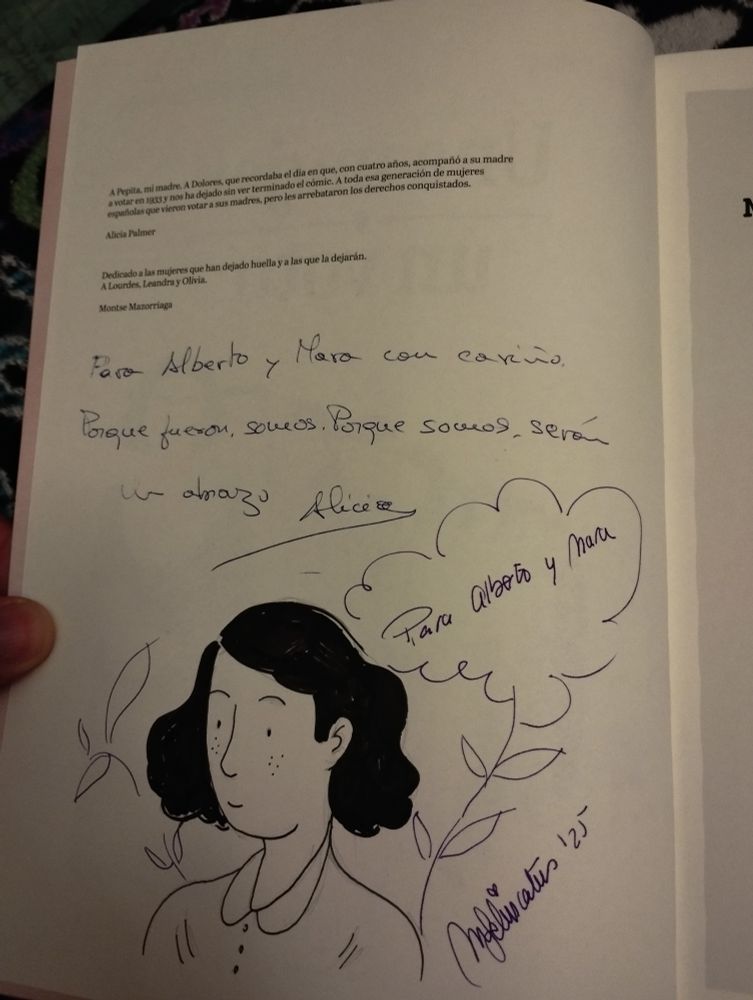 A Pepita, mi madre. A Dolores, que recordaba el día en que, con cuatro años, acompañó a su madre
a votar en 1933 y nos ha dejado sin ver terminado el cómic. A toda esa generación de mujeres
españolas que vieron votar a sus madres, pero les arrebataron los derechos conquistados.
Alicia Palmer
Dedicado a las mujeres que han dejado huella y a las que la dejarán.
A Lourdes, Leandra y Olivia.
Montse Mazorriaga
Para Alberto y Mara con cariño.
Porque fueron, somos. Porque somos, serán
un abrazo Alicia
Para Alberto y Mara
'25
M